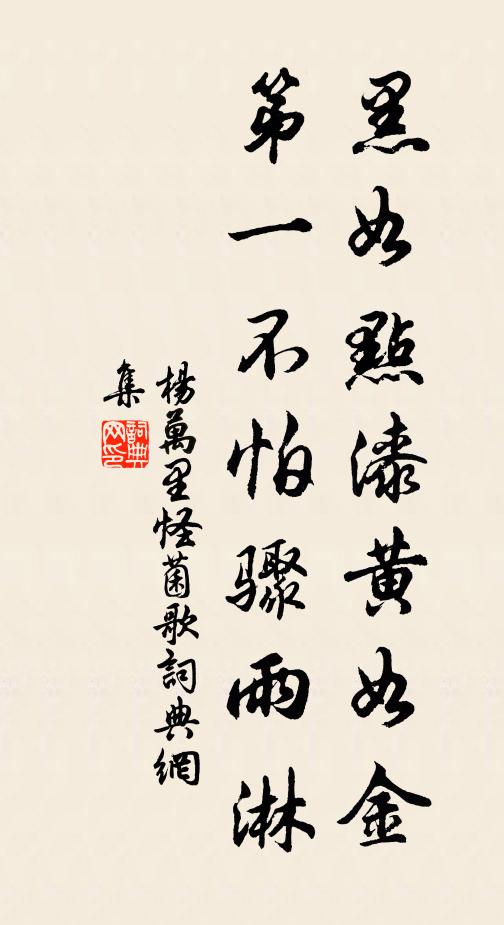 黑如點漆黃如金
第一不怕驟雨淋
楊萬里怪菌歌詞典網
集
詞典網印